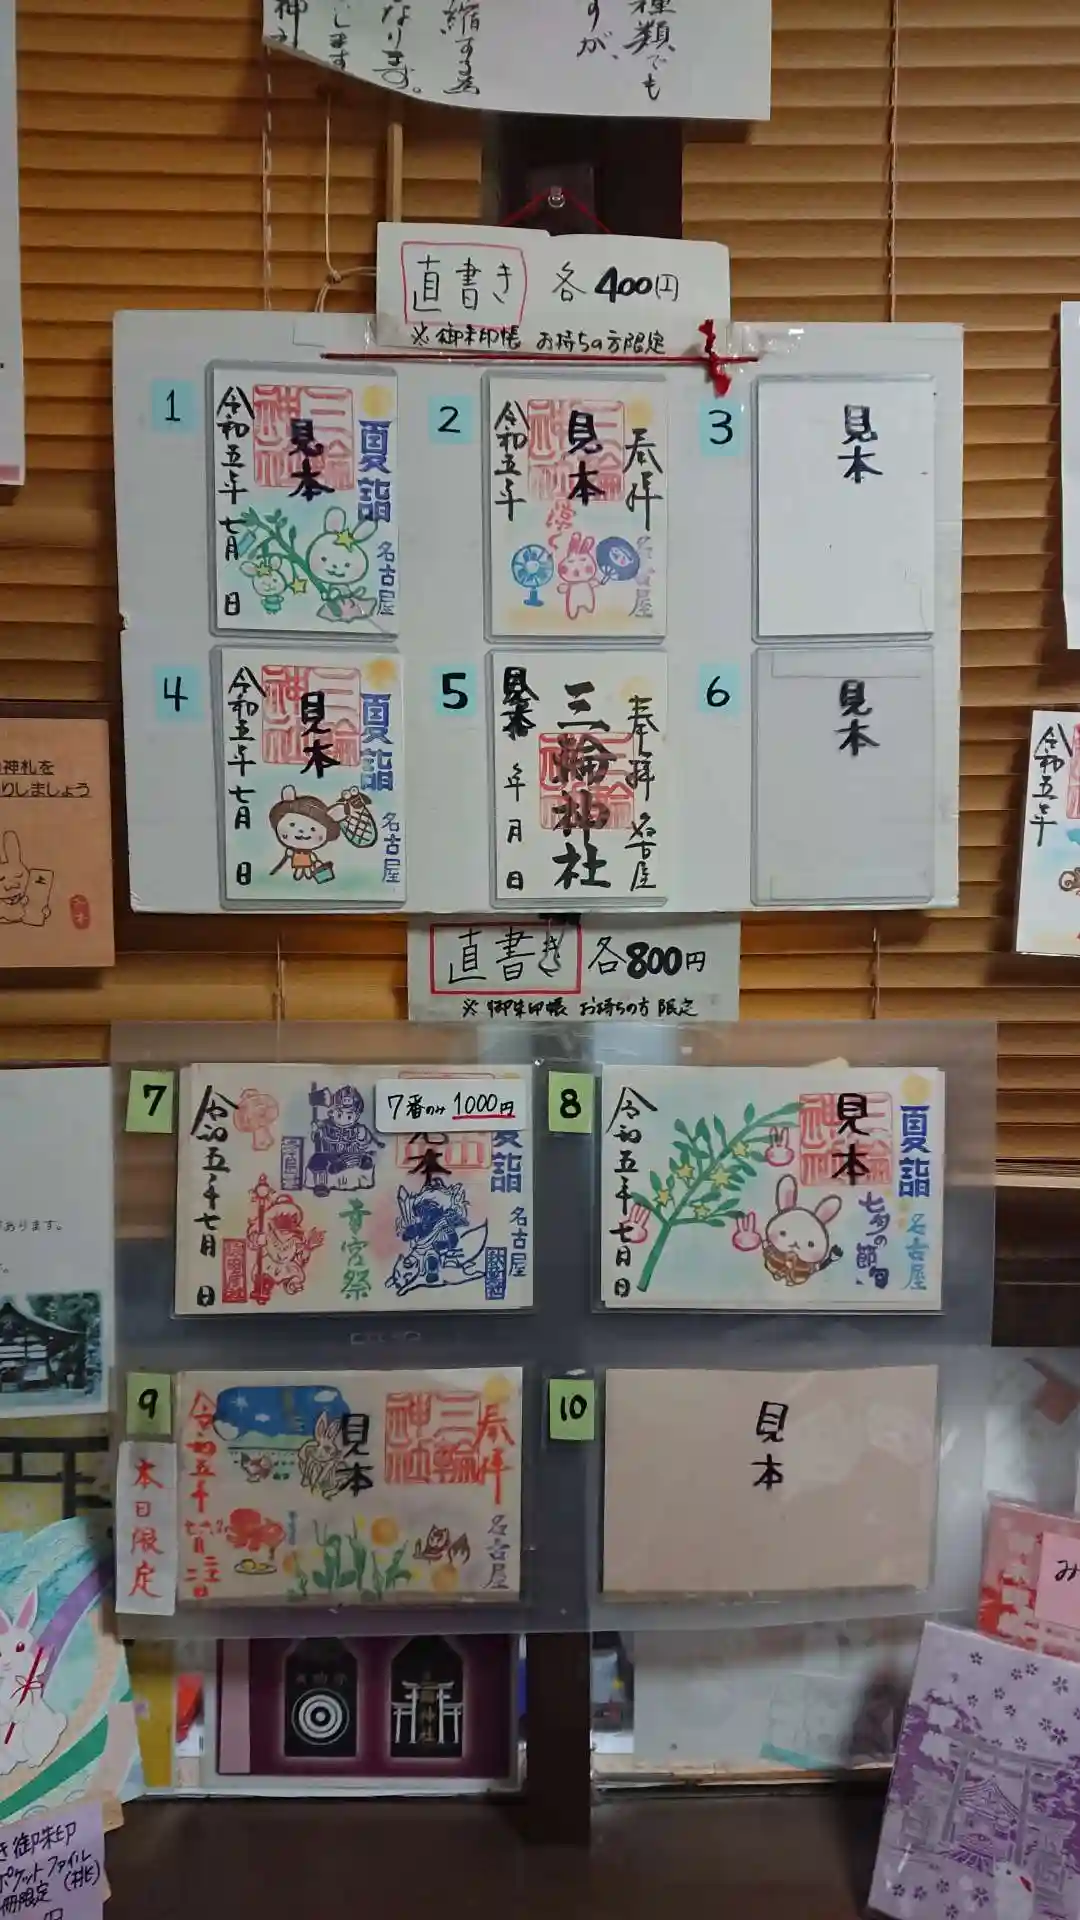 種類でも
すが、
縮する為
なります。
します
直書き 各400円
※御朱印帳 お持ちの方限定
1
夏詣
三輪神社
見本
令和五年七月 日
名古屋
2
奉拝
三輪神社
見本
令和五年
名古屋
3
見本
4
夏詣
三輪神社
見本
令和五年七月 日
名古屋
5
奉拝 名古屋
三輪神社
見本
年月日
6
見本
直書き 各800円
※御朱印帳 お持ちの方限定
7
7番のみ1000円
夏詣
名古屋
見本
青宮祭
令和五年七月 日
8
夏詣
名古屋
三輪神社
見本
七夕の節句
令和五年七月 日
9
本日限定
奉拝
三輪神社
見本
名古屋
令和五年
10
見本
神札を
りしましょう
令和五年
があります。
き御朱印
ポケットファイル
(桃)
冊限定
円
三輪神社
み